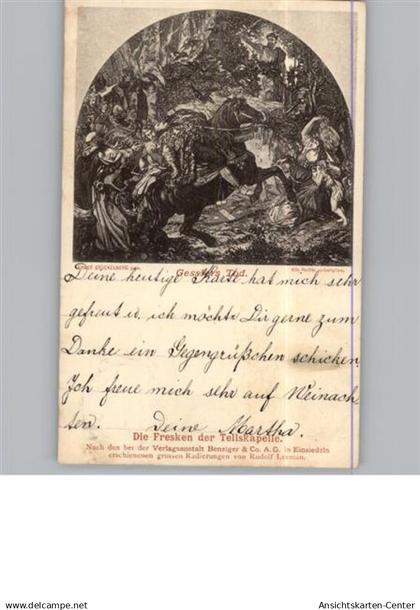 ERNST STÜCKELBERG pinx.
Alle Rechte vorbehalten.
Gesslers Tod.
Deine heutige Karte hat mich sehr
gefreut u. ich möchte Dir gerne zum
Danke ein Gegengrüßchen schicken.
Ich freue mich sehr auf Weinach-
ten. Deine Martha.
Die Fresken der Tellskapelle.
Nach den bei der Verlagsanstalt Benziger & Co. A.G. in Einsiedeln
erschienenen grossen Radierungen von Rudolf Leeman.
delcampe.net
Ansichtskarten-Center